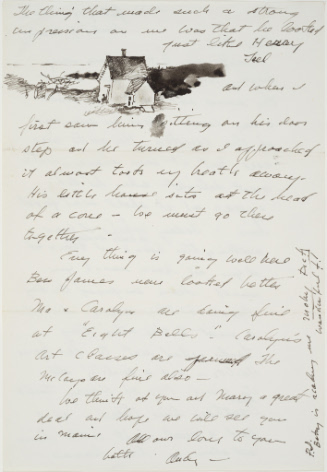 The thing that made such a strong
impression on me was that he looked
just like Henry
Teel
and when I
first saw him sitting on his door
step and he turned as I approached
it almost took my breath away.
His little house sits at the head
of a cove – we must go there
together –
Every thing is going well here
Ben James never looked better
Mo & Carolyn are doing fine
at "Eight Bells". Carolyn's
Art classes are The
McCoys are fine also –
We think of you and Mary a great
deal and hope we will see you
in Maine All our love to you
both. Andy –
P.S. Betsy is reading me Moby Dick
wonderful!